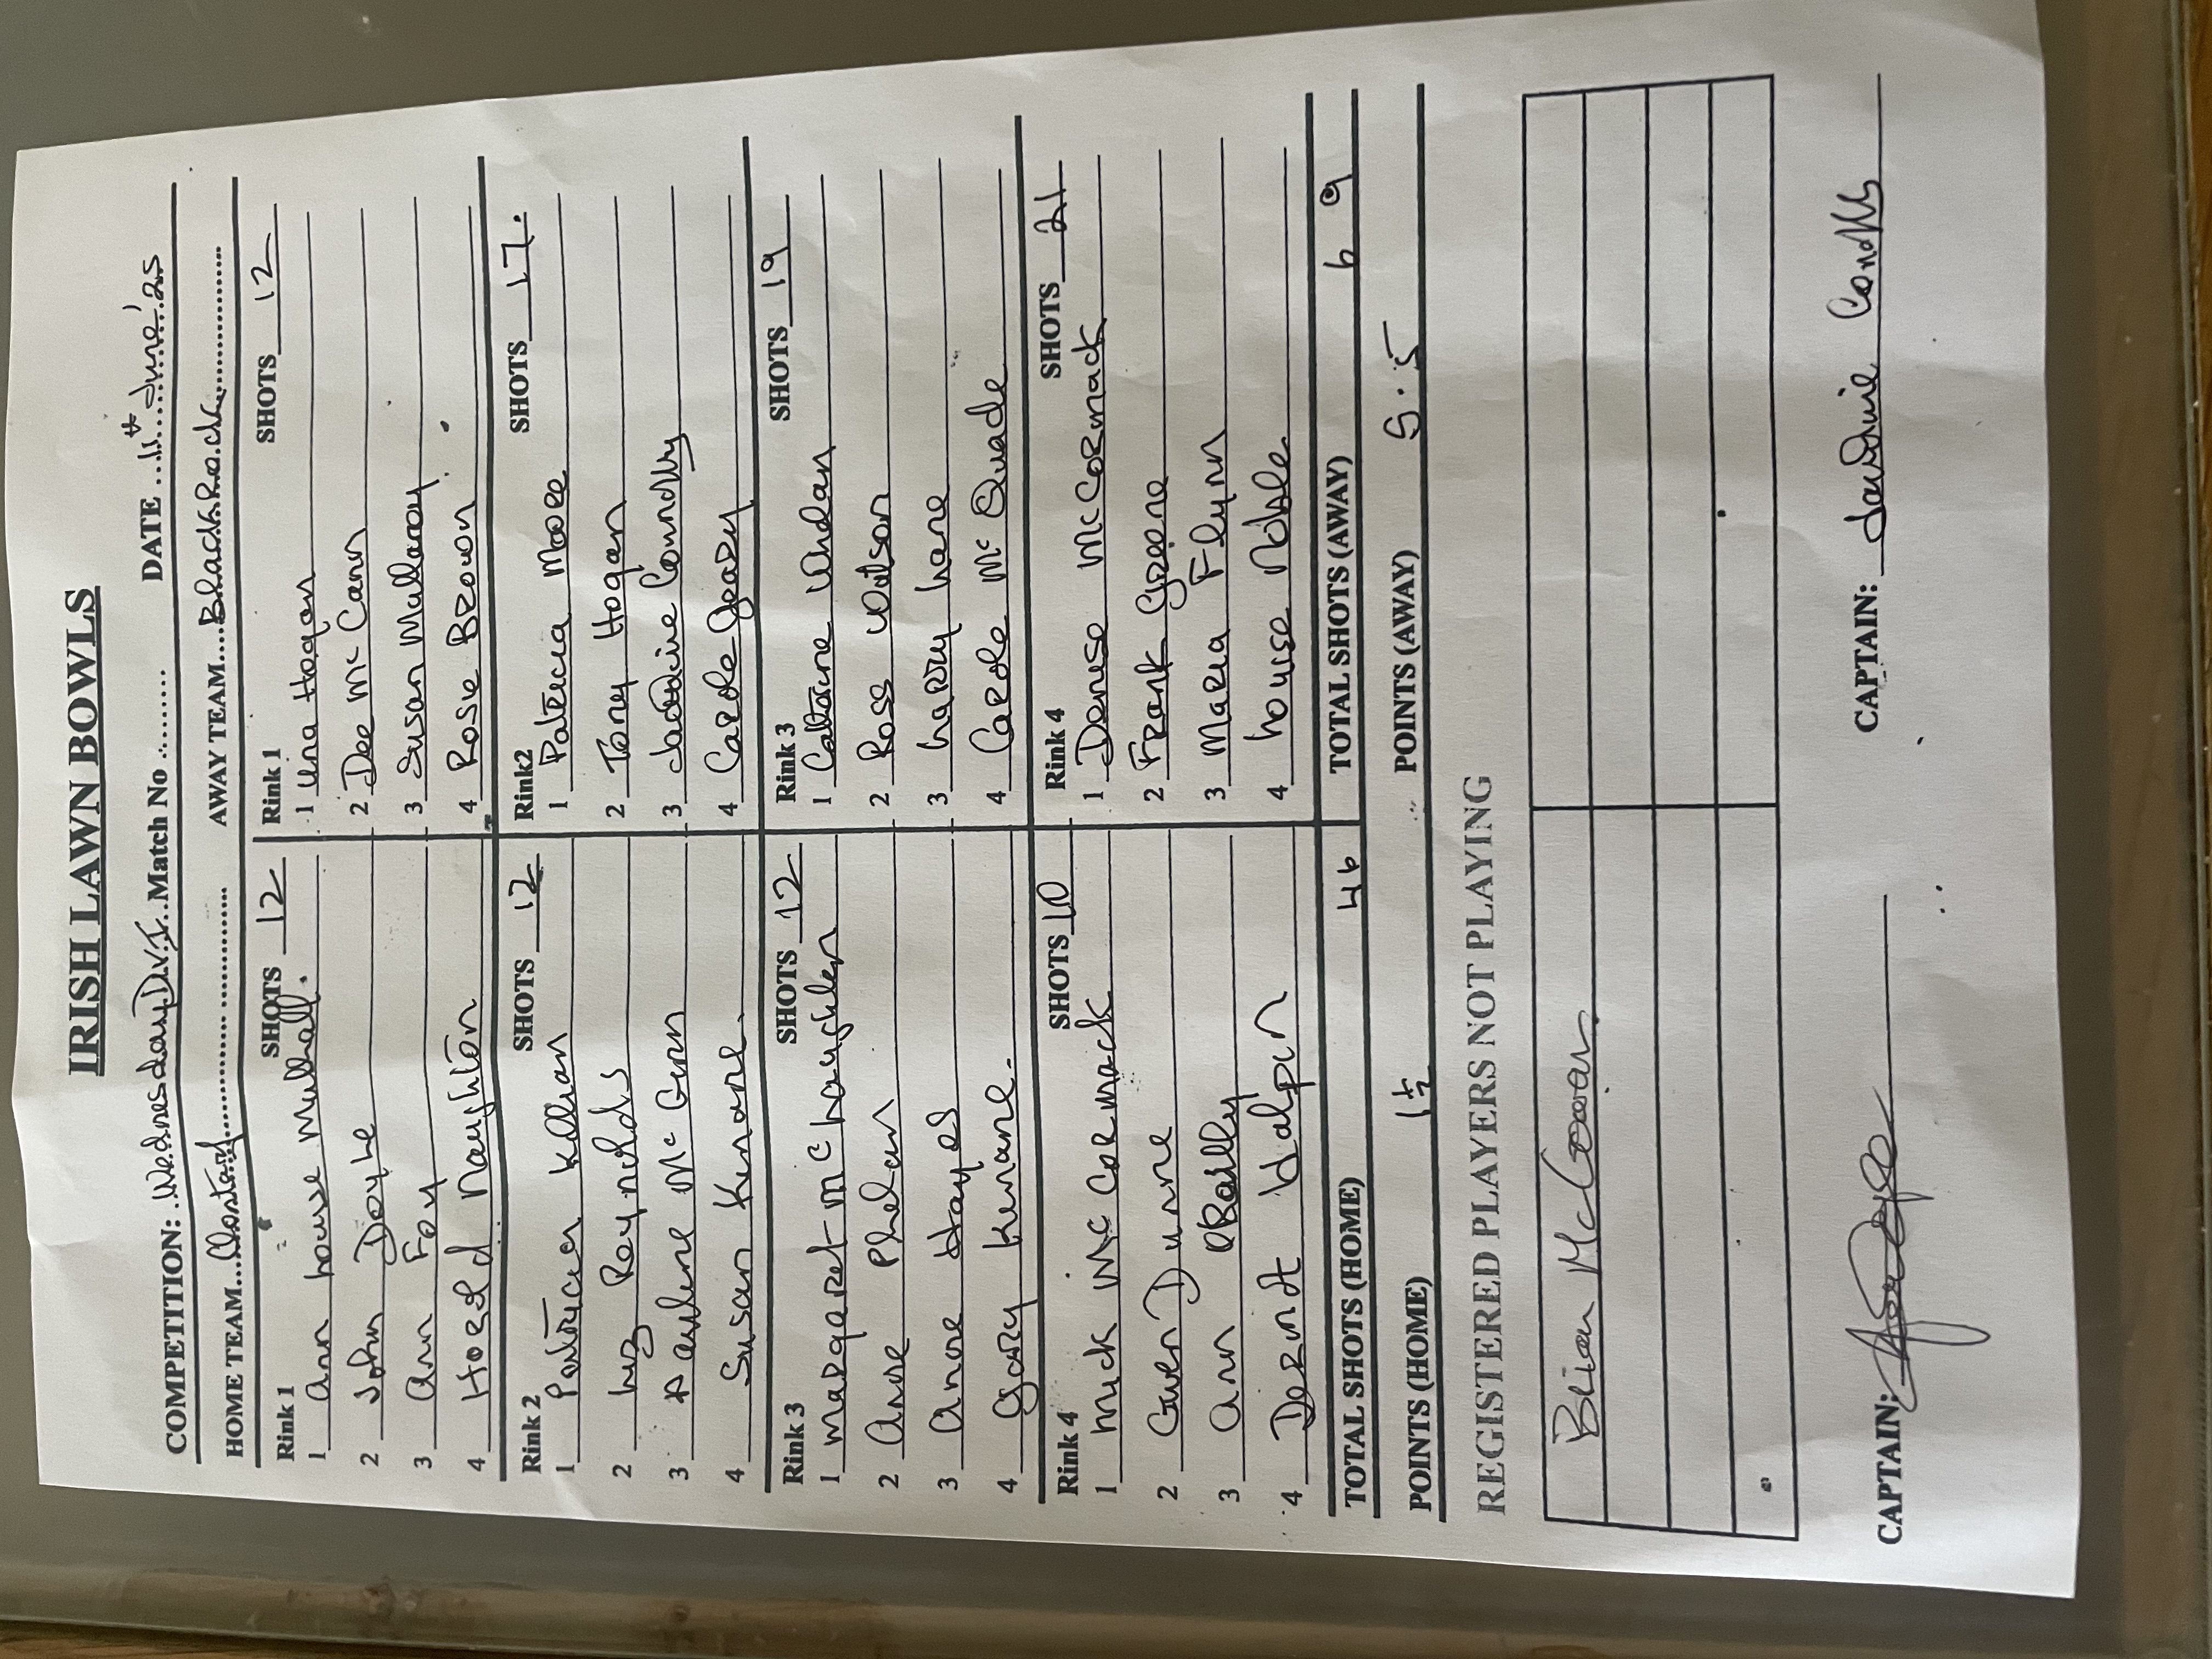 IRISH LAWN BOWLS
COMPETITION: Wednesday Div 1 Match No ........ DATE 11th June '25
HOME TEAM... Clontarf AWAY TEAM... Blackrock
Rink 1 SHOTS 12
1 Ann Louise Mulhall.
2 John Doyle
3 Ann Foy
4 Harold Naughton
Rink 1 SHOTS 12
1 Una Hogan
2 Dee McCann
3 Susan Mullarney
4 Rosie Brown
Rink 2 SHOTS 12
1 Patricia Killian
2 Liz Reynolds
3 Pauline McGinn
4 Susan Kinnane.
Rink2 SHOTS 17.
1 Patricia Moore
2 Tony Hogan
3 Connolly
4 Carole Geary
Rink 3 SHOTS 12
1 Margaret McLoughlin
2 Anne Phelan
3 Anne Hayes
4 Gerry Kinnane.
Rink 3 SHOTS 19
1 Whelan
2 Ross Watson
3 Larry Lane
4 Carole McQuade
Rink 4 SHOTS 10
1 Mick McCormack
2 Gwen Dunne
3 Ann OReilly
4 Dermot Halpin
Rink 4 SHOTS 21
1 Denise McCormack
2 Frank Greene
3 Maria Flynn
4 Louise Noble
TOTAL SHOTS (HOME) 46 TOTAL SHOTS (AWAY) 69
POINTS (HOME) 1½ POINTS (AWAY) 5.5
REGISTERED PLAYERS NOT PLAYING
Brian McGowan
CAPTAIN: CAPTAIN: Connolly